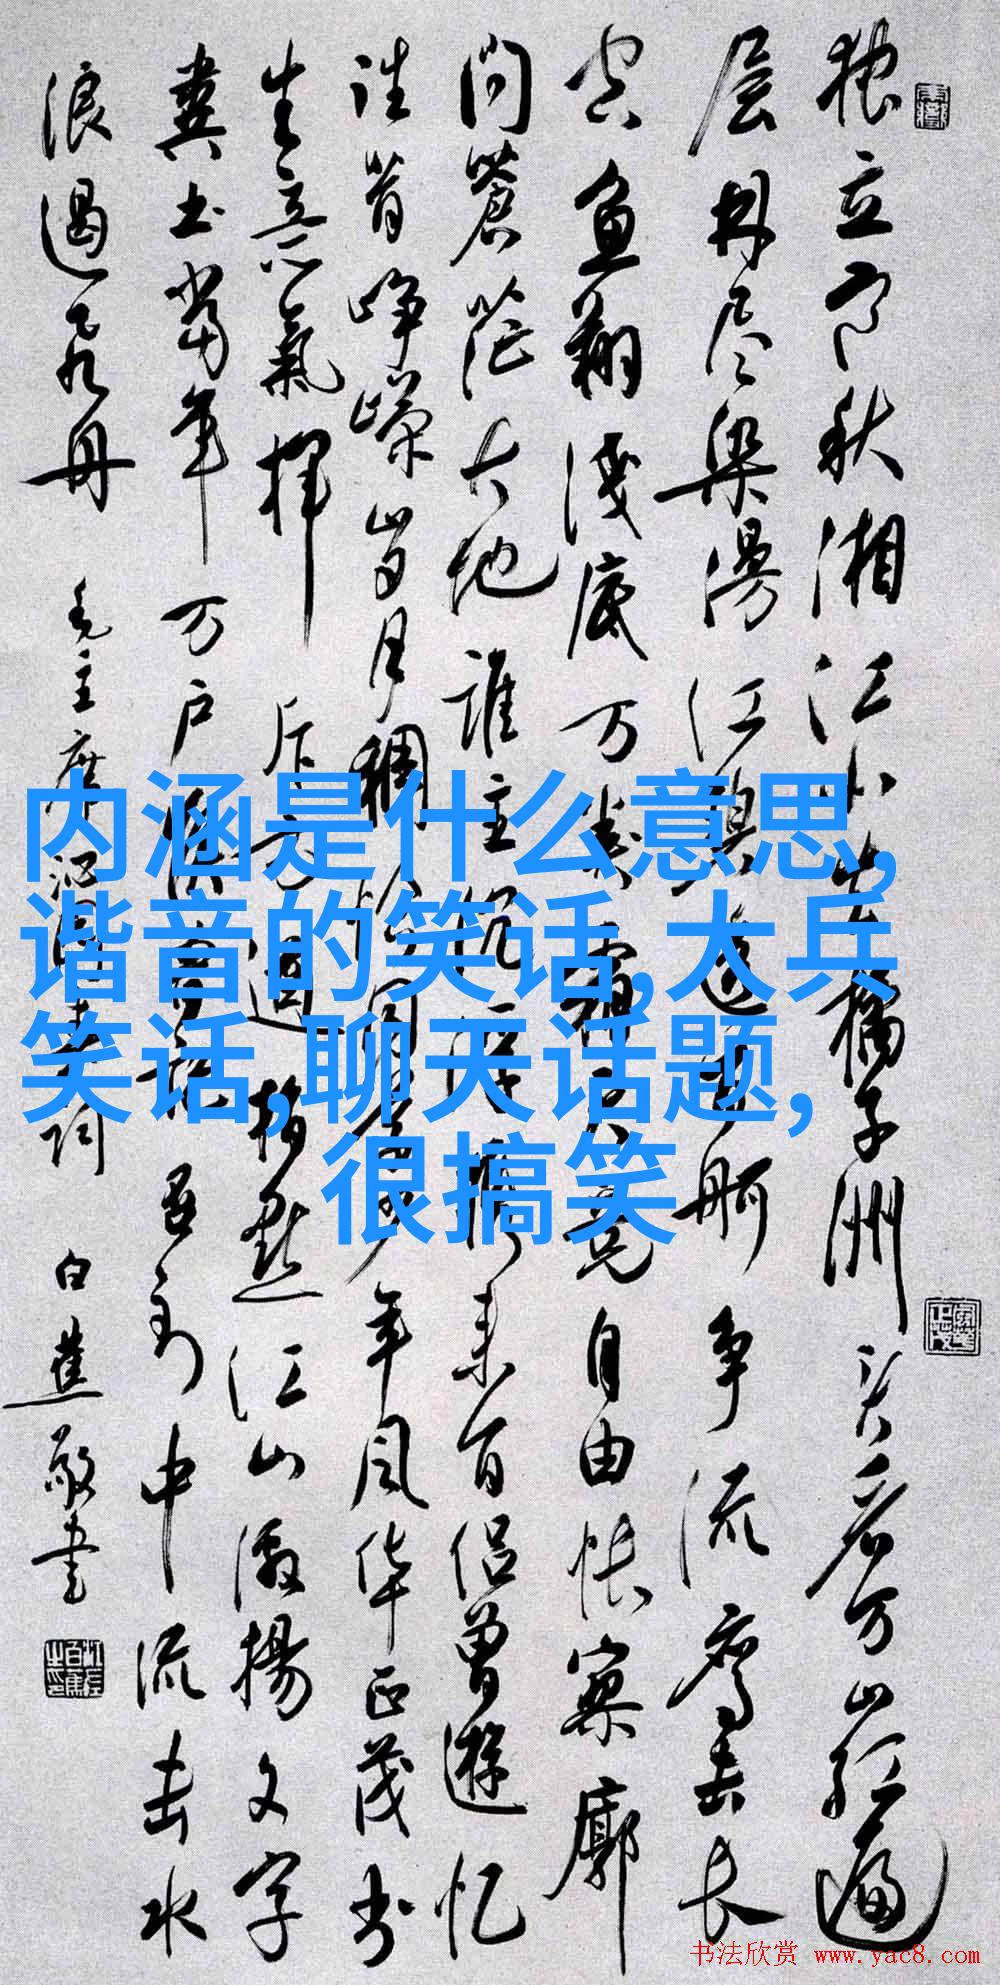 独立寒秋湘江北去橘子洲头看万山红遍
层林尽染漫江碧透百舸争流鹰击长
空鱼翔浅底万类霜天竞自由怅寥廓
问苍茫大地谁主沉浮携来百侣曾遊忆
往昔峥嵘岁月稠恰同学少年风华正茂书
生意氣挥斥方遒指点江山激揚文字
粪土当年万户侯曾记否到中流击水
浪遏飞舟 毛主席沁园春词 白蕉敬书
内涵是什么意思,
谐音的笑话,大兵
笑话,聊天话题,
很搞笑
书法欣赏 www.yac8.com